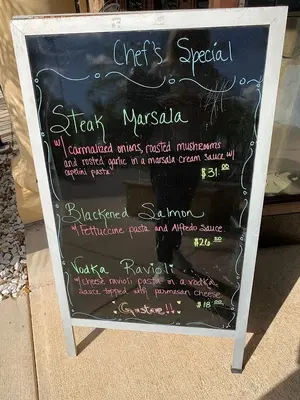 Chef's Special
Steak Marsala
w/ Carmalized onins, roasted mushrooms
and rosted garlic in a marsala cream sauce w/
capellini pasta
$31.00
Blackened Salmon
w/ Fettuccine pasta and Alfredo sauce.
$26.50
Vodka Ravioli
w/ cheese ravioli pasta in a vodka
sauce topped with parmesan cheese
$18.50